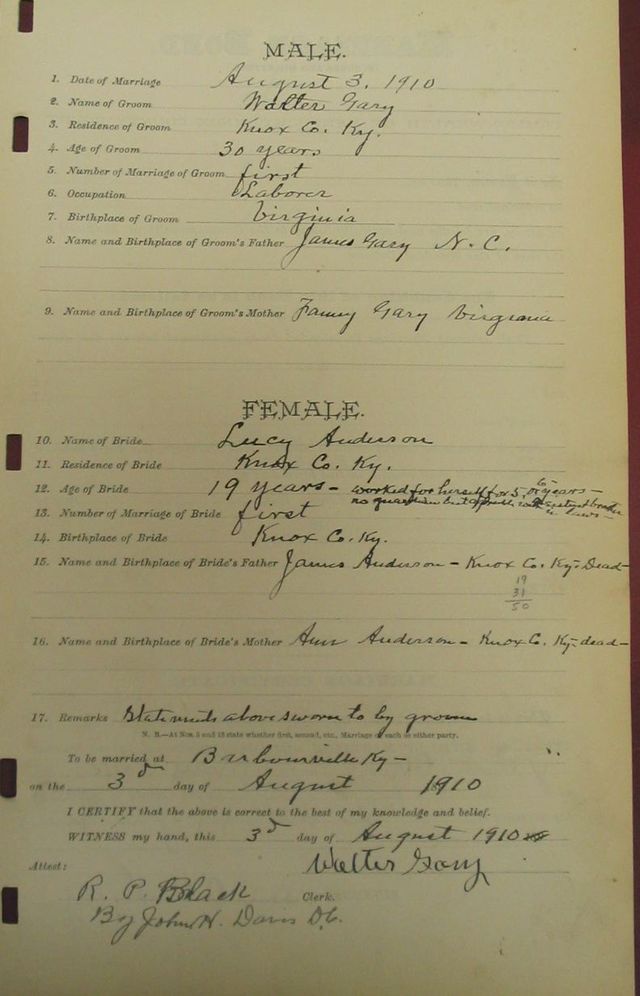 MALE.
1. Date of Marriage August 3, 1910
2. Name of Groom Walter Gary
3. Residence of Groom Knox Co. Ky.
4. Age of Groom 30 years
5. Number of Marriage of Groom first
6. Occupation Laborer
7. Birthplace of Groom Virginia
8. Name and Birthplace of Groom's Father James Gary N. C.
9. Name and Birthplace of Groom's Mother Fanny Gary Virginia
FEMALE.
10. Name of Bride Lucy Anderson
11. Residence of Bride Knox Co. Ky.
12. Age of Bride 19 years - worked for herself for 5 or 6 years -
no guardian but
13. Number of Marriage of Bride first
14. Birthplace of Bride Knox Co. Ky.
15. Name and Birthplace of Bride's Father James Anderson - Knox Co. Ky - Dead -
19
31
50
16. Name and Birthplace of Bride's Mother Ann Anderson - Knox Co. Ky - dead -
17. Remarks Statements above sworn to by groom
N. B.—At Nos. 5 and 13 state whether first, second, etc., Marriage of each or either party.
To be married at Barbourville Ky -
on the 3d day of August 1910
I CERTIFY that the above is correct to the best of my knowledge and belief.
WITNESS my hand, this 3d day of August 1910
Attest: Walter Gary
R. P. Black Clerk.
By John H. Davis D.C.